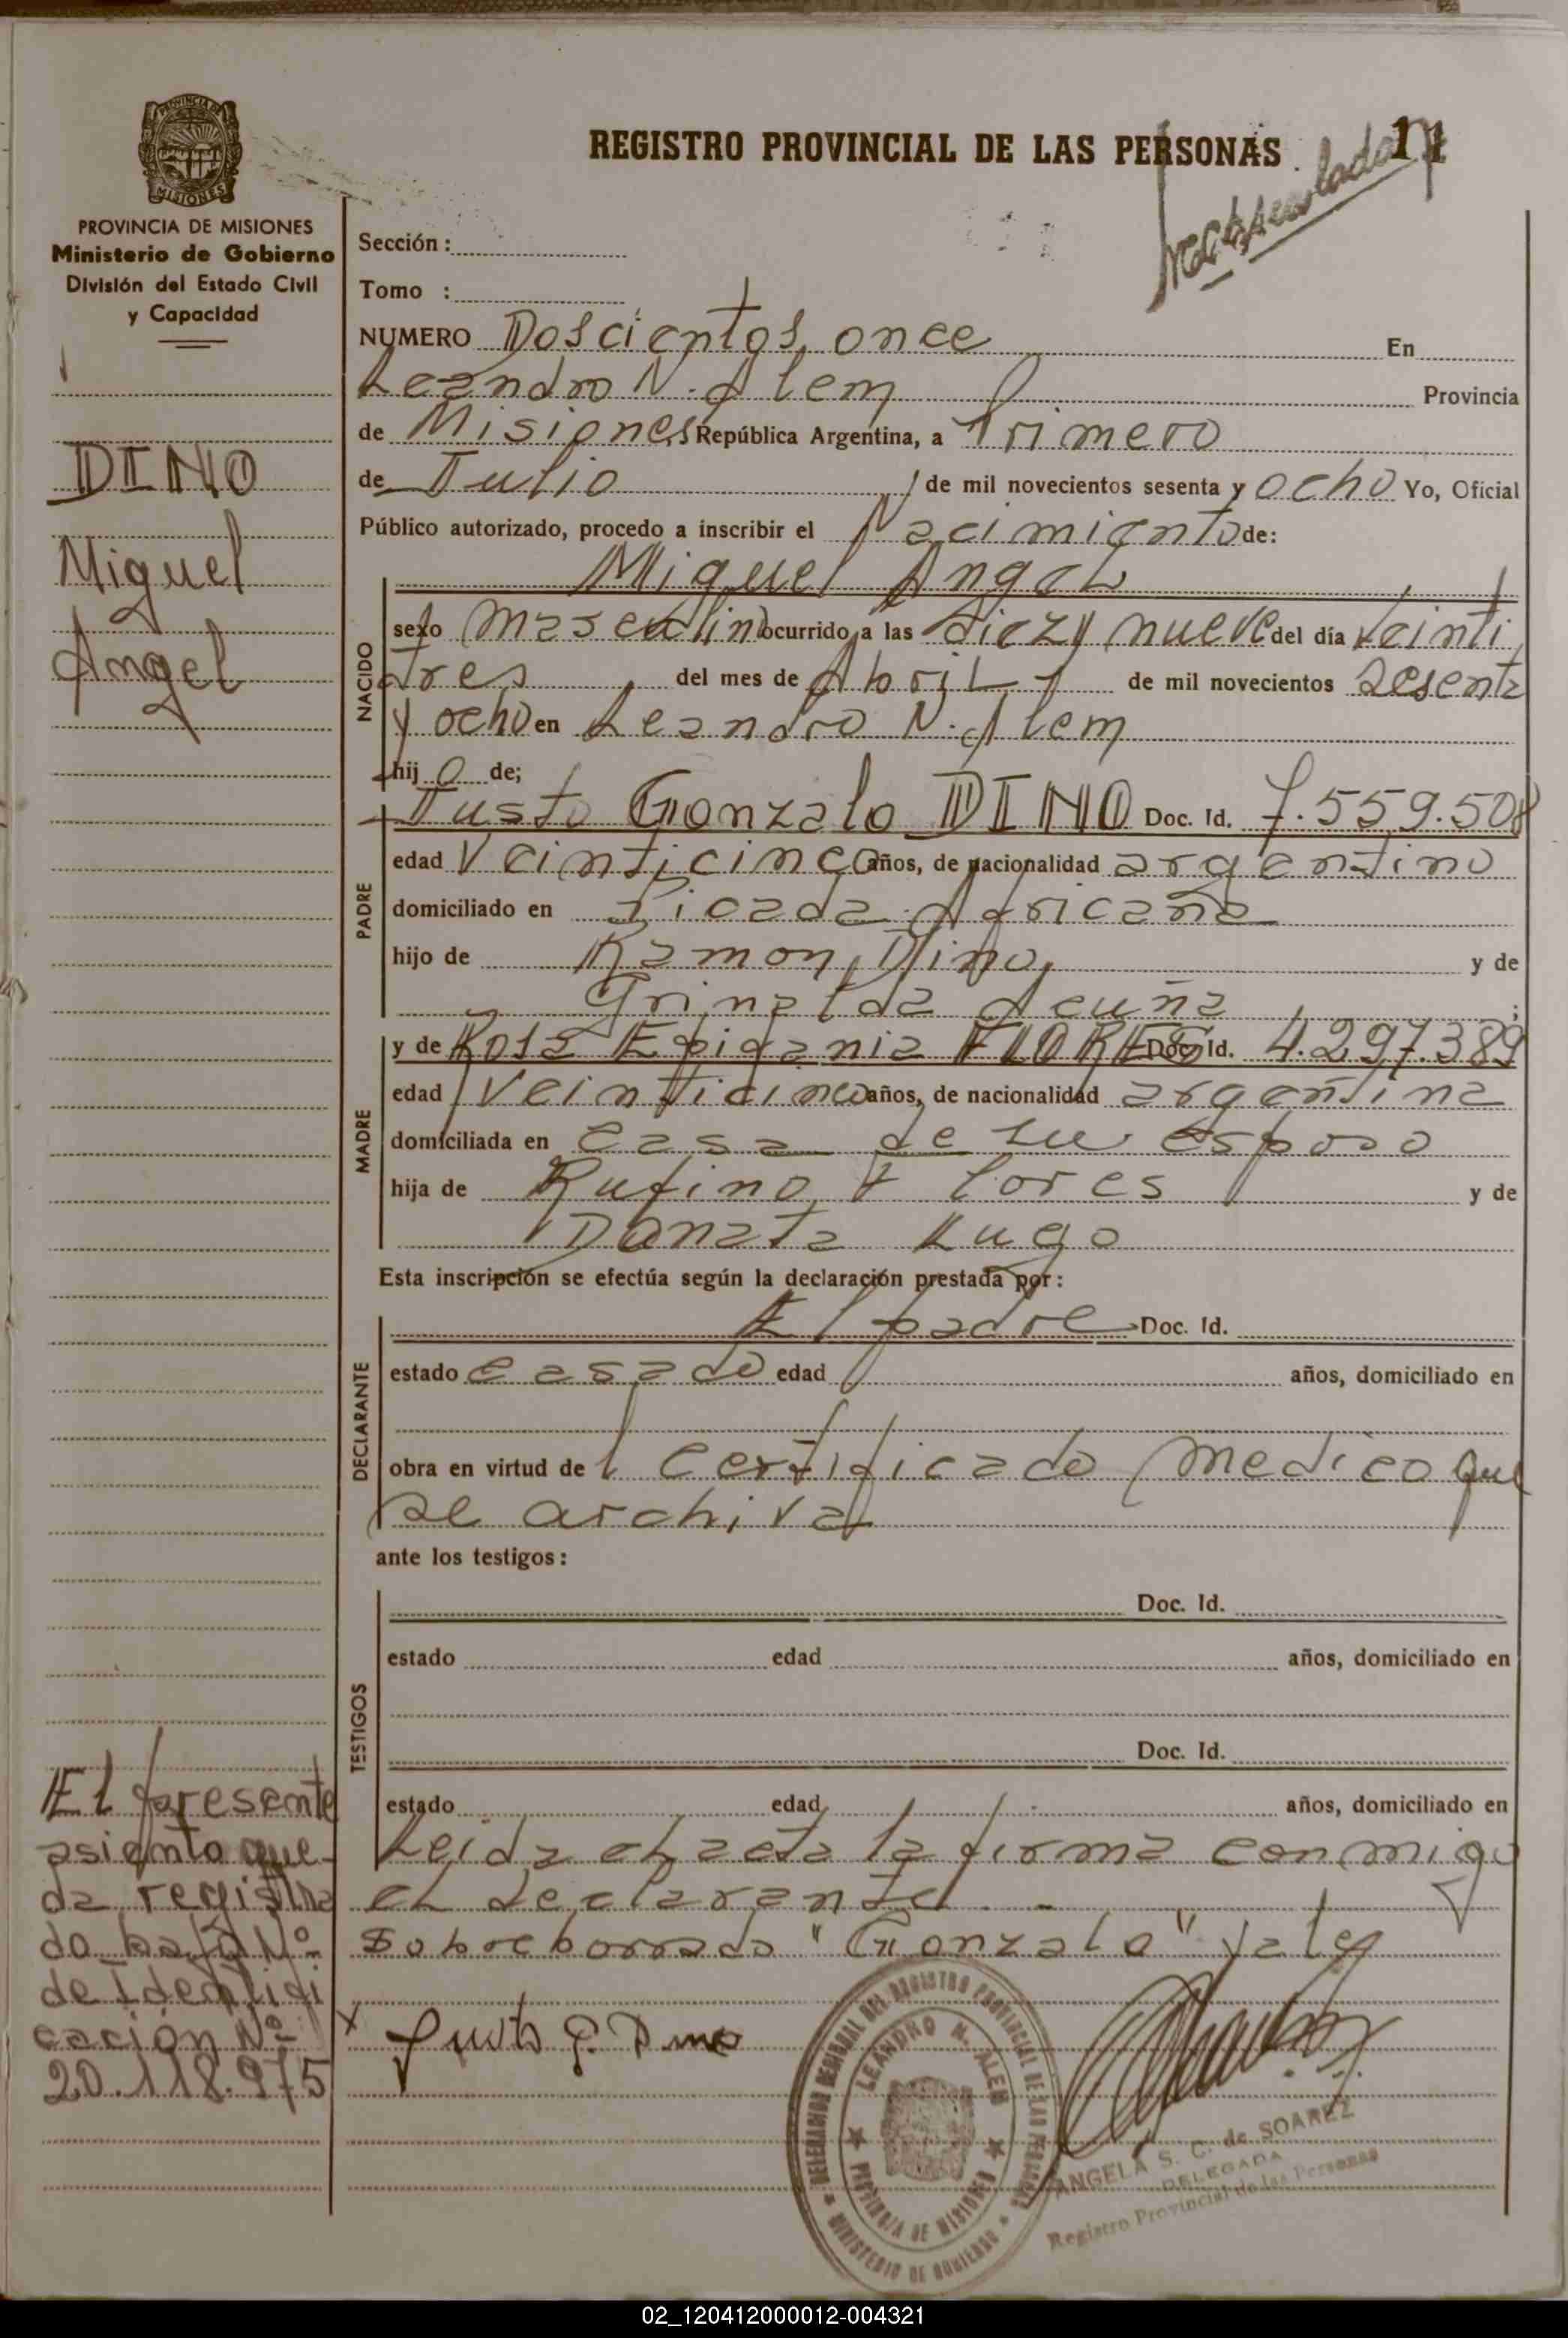 REGISTRO PROVINCIAL DE LAS PERSONAS
11
PROVINCIA DE MISIONES
Ministerio de Gobierno
División del Estado Civil
y Capacidad
DINO
Miguel
Angel
Sección :
Tomo :
NUMERO Doscientos once En
Leandro N. Alem Provincia
de Misiones República Argentina, a Primero
de Julio de mil novecientos sesenta y ocho Yo, Oficial
Público autorizado, procedo a inscribir el Nacimiento de:
NACIDO
Miguel Angel
sexo masculino ocurrido a las diez y nueve del día veinti
tres del mes de Abril de mil novecientos sesenta
y ocho en Leandro N. Alem
hijo de;
PADRE
Justo Gonzalo DINO Doc. Id. 7.559.508
edad Veinticinco años, de nacionalidad argentino
domiciliado en Picada Africana
hijo de Ramon Dino y de
Grinalda Acuña ;
MADRE
y de Rosa Epifania FLORES Doc. Id. 4.297.389
edad Veinticinco años, de nacionalidad argentina
domiciliada en casa de su esposo
hija de Rufino Flores y de
Donata Lugo
Esta inscripción se efectúa según la declaración prestada por :
DECLARANTE
El padre Doc. Id.
estado casado edad años, domiciliado en
obra en virtud del certificado medico que
se archiva
ante los testigos :
TESTIGOS
Doc. Id.
estado edad años, domiciliado en
Doc. Id.
estado edad años, domiciliado en
Leida el acta la firma conmigo
el declarante.-
Sobreborrado "Gonzalo" vale
El presente
asiento que-
da registra
do bajo Nº
de Identifi
cación Nº
20.118.975
x Justo G. Dino
DELEGACION GENERAL DEL REGISTRO PROVINCIAL DE LAS PERSONAS
LEANDRO N. ALEM
PROVINCIA DE MISIONES
MINISTERIO DE GOBIERNO
ANGELA S. C. de SOAREZ
DELEGADA
Registro Provincial de las Personas
02_120412000012-004321